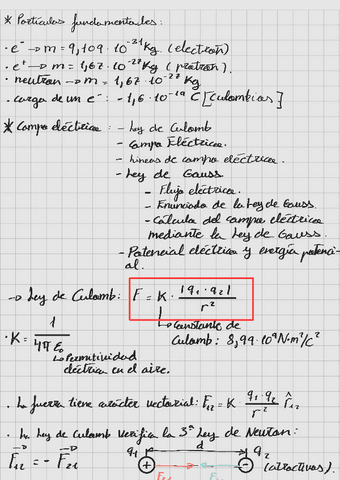 * Partículas fundamentales:
· e⁻ → m = 9,109 · 10⁻³¹ Kg (electrón)
· e⁺ → m = 1,67 · 10⁻²⁷ Kg (protón).
· neutrón → m = 1,67 · 10⁻²⁷ Kg
· carga de un e⁻: -1,6 · 10⁻¹⁹ C [culombios]
* Campo eléctrico: - Ley de Culomb
- Campo Eléctrico.
- Líneas de campo eléctrico.
- Ley de Gauss
- Flujo eléctrico.
- Enunciado de la Ley de Gauss.
- Cálculo del campo eléctrico
mediante la Ley de Gauss.
- Potencial eléctrico y energía potenci-
al.
→ Ley de Culomb: F = K · |q₁ · q₂| / r²
Constante de
Culomb: 8,99·10⁹ N·m²/C²
· K = 1 / 4πε₀
Permitividad
eléctrica en el aire.
· La fuerza tiene carácter vectorial: F₁₂ = K · q₁ · q₂ / r² r̂₁₂
· La Ley de Culomb verifica la 3ª Ley de Newton:
F₁₂ = - F₂₁ q₁ + d - q₂ (atractivas).